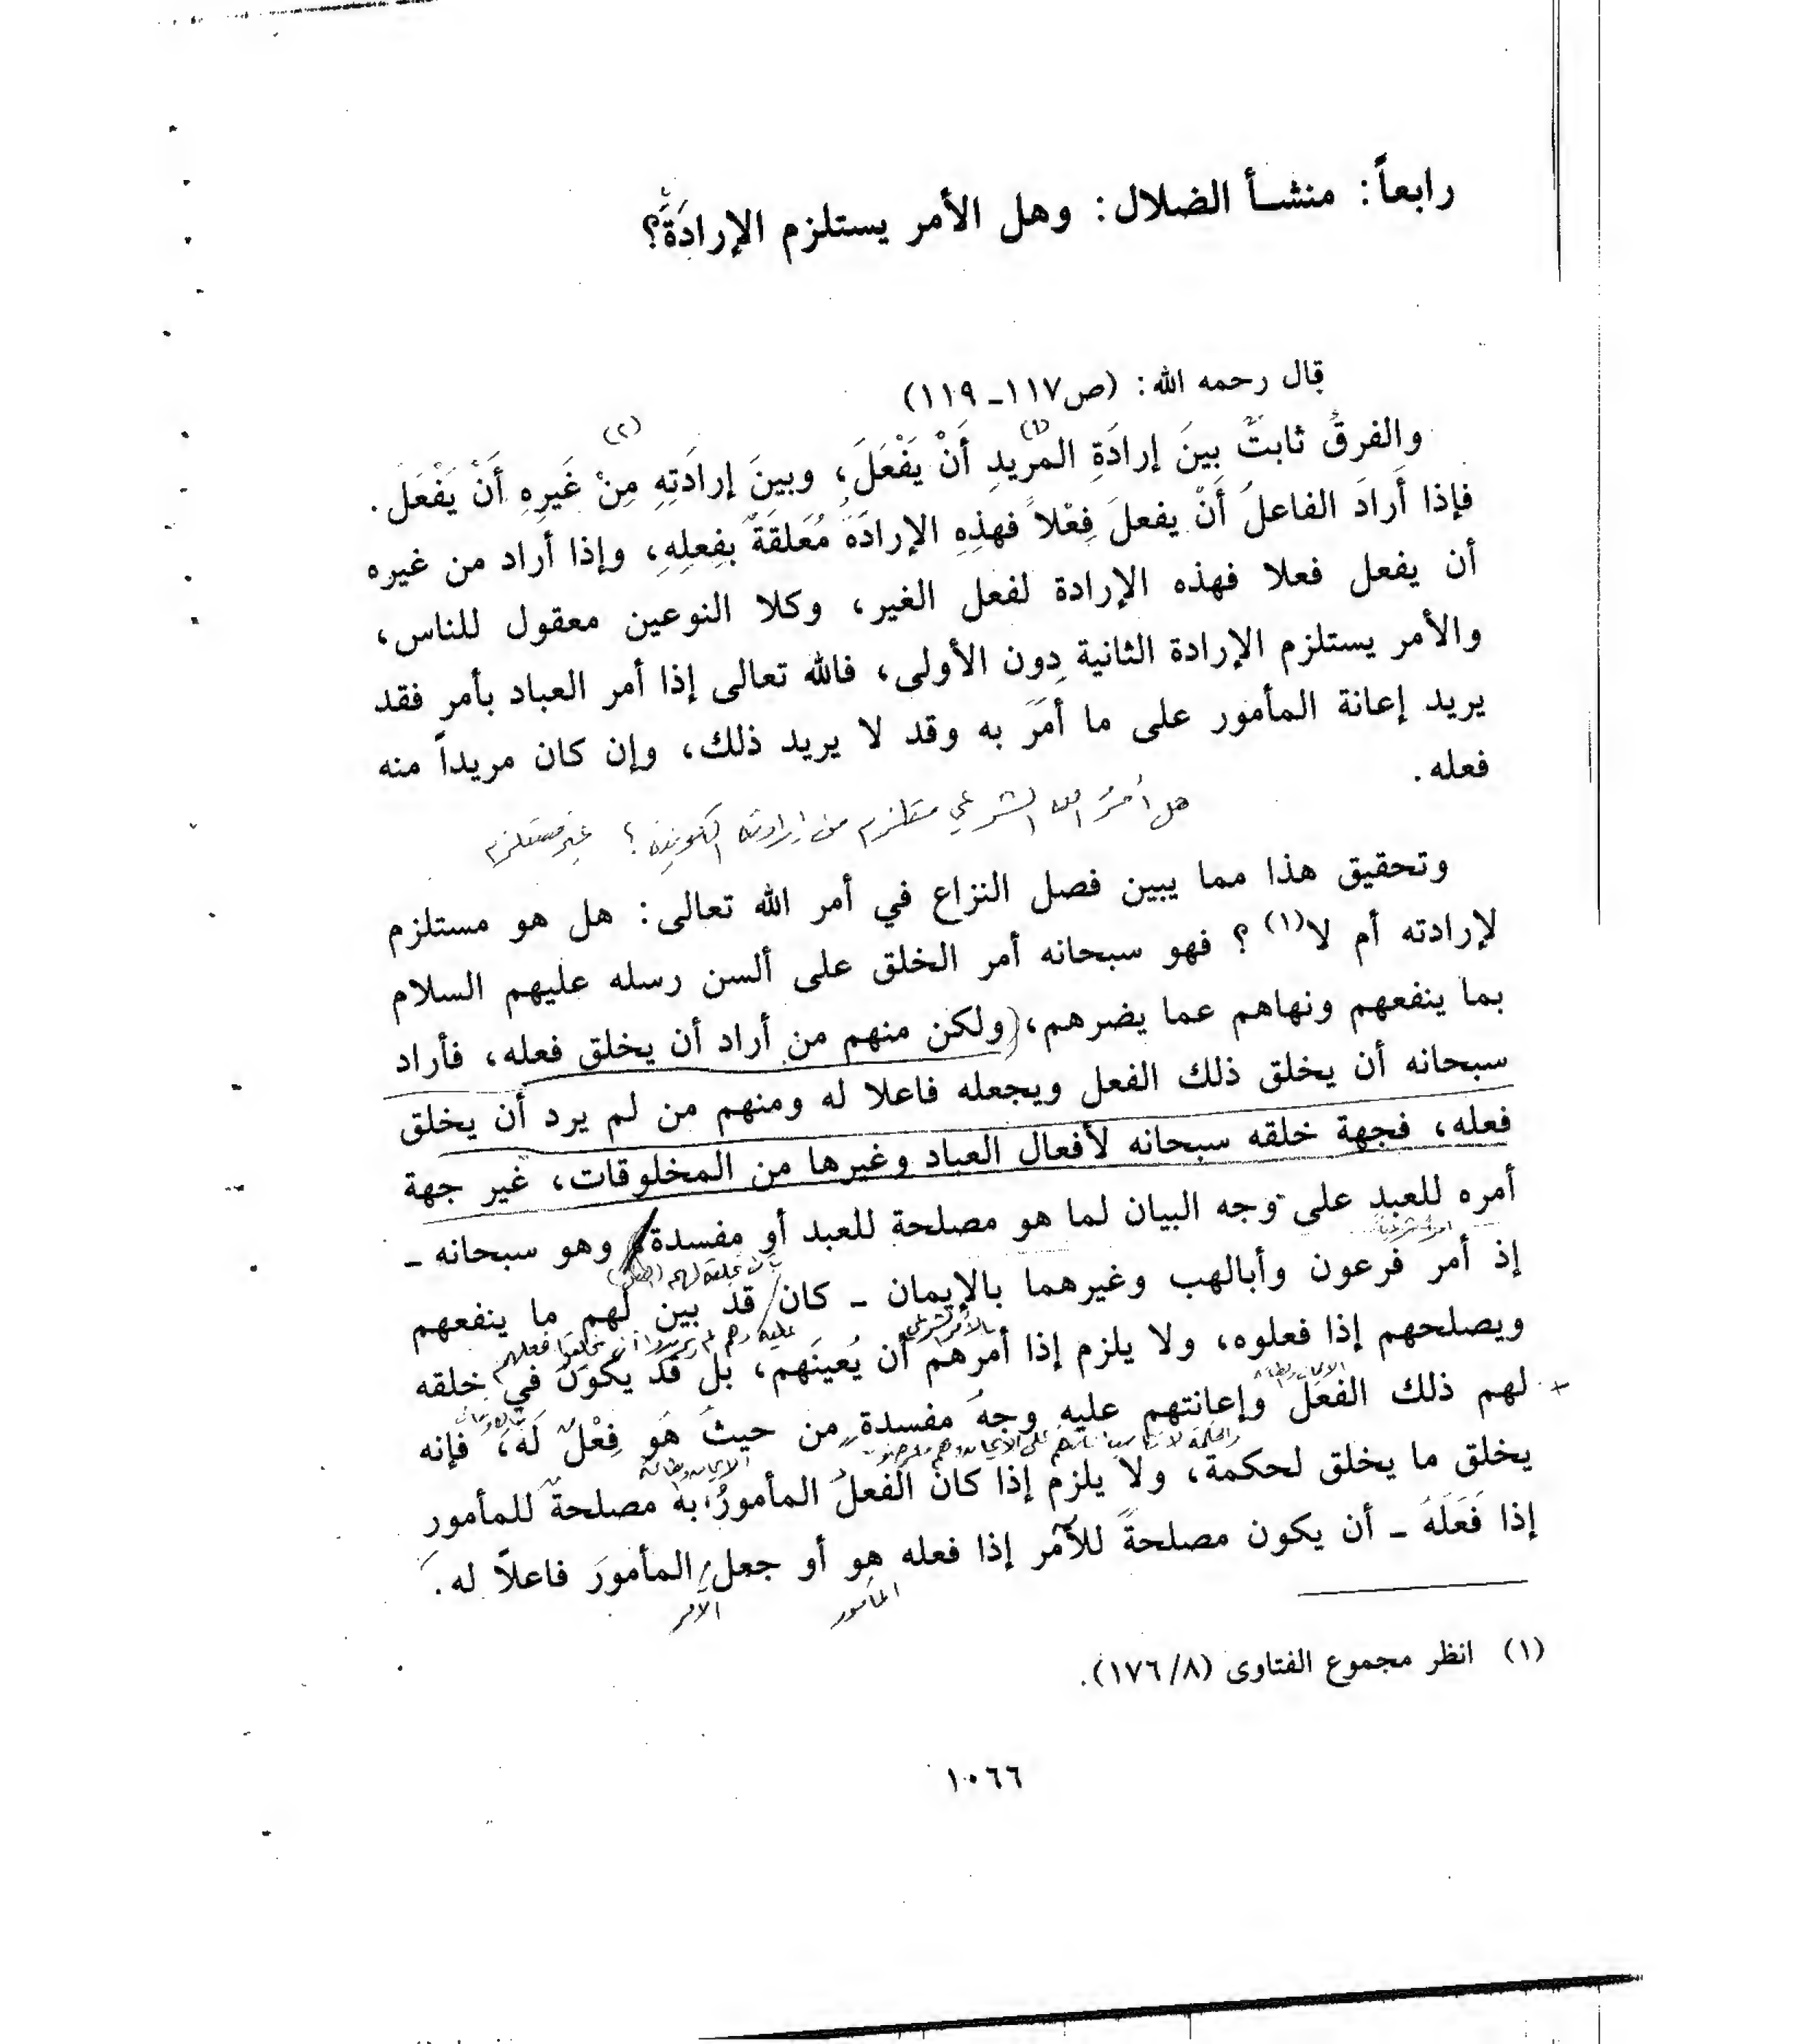 رابعاً: منشـأ الضلال: وهل الأمر يستلزم الإرادَةَ؟
قال رحمه الله: (ص١١٧ـ ١١٩)
(١) (٢)
والفرقُ ثابتٌ بينَ إرادَةِ المُريدِ أَنْ يَفْعَلَ، وبينَ إرادَتِهِ مِنْ غَيرِهِ أَنْ يَفْعَلَ.
فإذا أَرادَ الفاعلُ أَنْ يفعلَ فِعْلاً فهذِهِ الإرادَةُ مُعَلقَةٌ بِفِعلِهِ، وإذا أراد من غيره
أن يفعل فعلا فهذه الإرادة لفعل الغير، وكلا النوعين معقول للناس،
والأمر يستلزم الإرادة الثانية دون الأولى، فالله تعالى إذا أمر العباد بأمر فقد
يريد إعانة المأمور على ما أَمَرَ به وقد لا يريد ذلك، وإن كان مريداً منه
فعله.
هل أمرُ الله الشرعي مستلزم من إرادته الكونية؟ غير مستلزم
وتحقيق هذا مما يبين فصل النزاع في أمر الله تعالى: هل هو مستلزم
لإرادته أم لا(١)؟ فهو سبحانه أمر الخلق على ألسن رسله عليهم السلام
بما ينفعهم ونهاهم عما يضرهم، (ولكن منهم من أراد أن يخلق فعله، فأراد
سبحانه أن يخلق ذلك الفعل ويجعله فاعلا له ومنهم من لم يرد أن يخلق
فعله، فجهة خلقه سبحانه لأفعال العباد وغيرها من المخلوقات، غير جهة
أمره للعبد على وجه البيان لما هو مصلحة للعبد أو مفسدة، وهو سبحانه ـ
أمراً شرعياً
إذ أمر فرعون وأبالهب وغيرهما بالإيمان ـ كان قد بين لهم ما ينفعهم
بالأمر الشرعي
ويصلحهم إذا فعلوه، ولا يلزم إذا أمرهم أن يُعينَهم، بل قد يكون في خلقه
لهم ذلك الفعل وإعانتهم عليه وجهُ مفسدةٍ من حيثُ هَو فِعْلٌ لَه، فإنه
يخلق ما يخلق لحكمة، ولا يلزم إذا كان الفعلُ المأمورُ به مصلحةً للمأمورِ
إذا فَعَلَهُ ـ أن يكون مصلحةً للآمر إذا فعله هو أو جعل المأمورَ فاعلاً له.
المأمور الآمر
(١) انظر مجموع الفتاوى (٨/ ١٧٦).
١٠٦٦